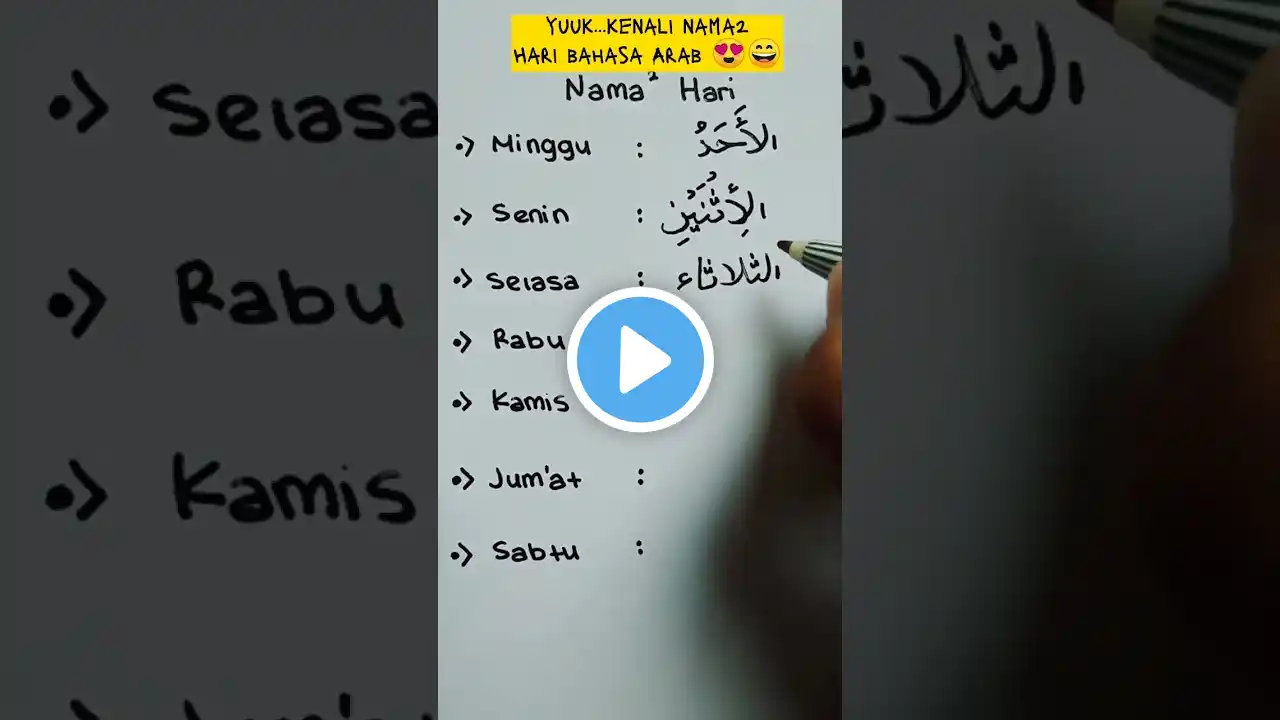 YUUK...KENALI NAMA2
HARI BAHASA ARAB 😍😄
Nama² Hari
•> Minggu : الأَحَدُ
•> Senin : الأِثْنَيْنِ
•> Selasa : الثلاثاء
•> Rabu
•> Kamis
•> Jum'at :
•> Sabtu :